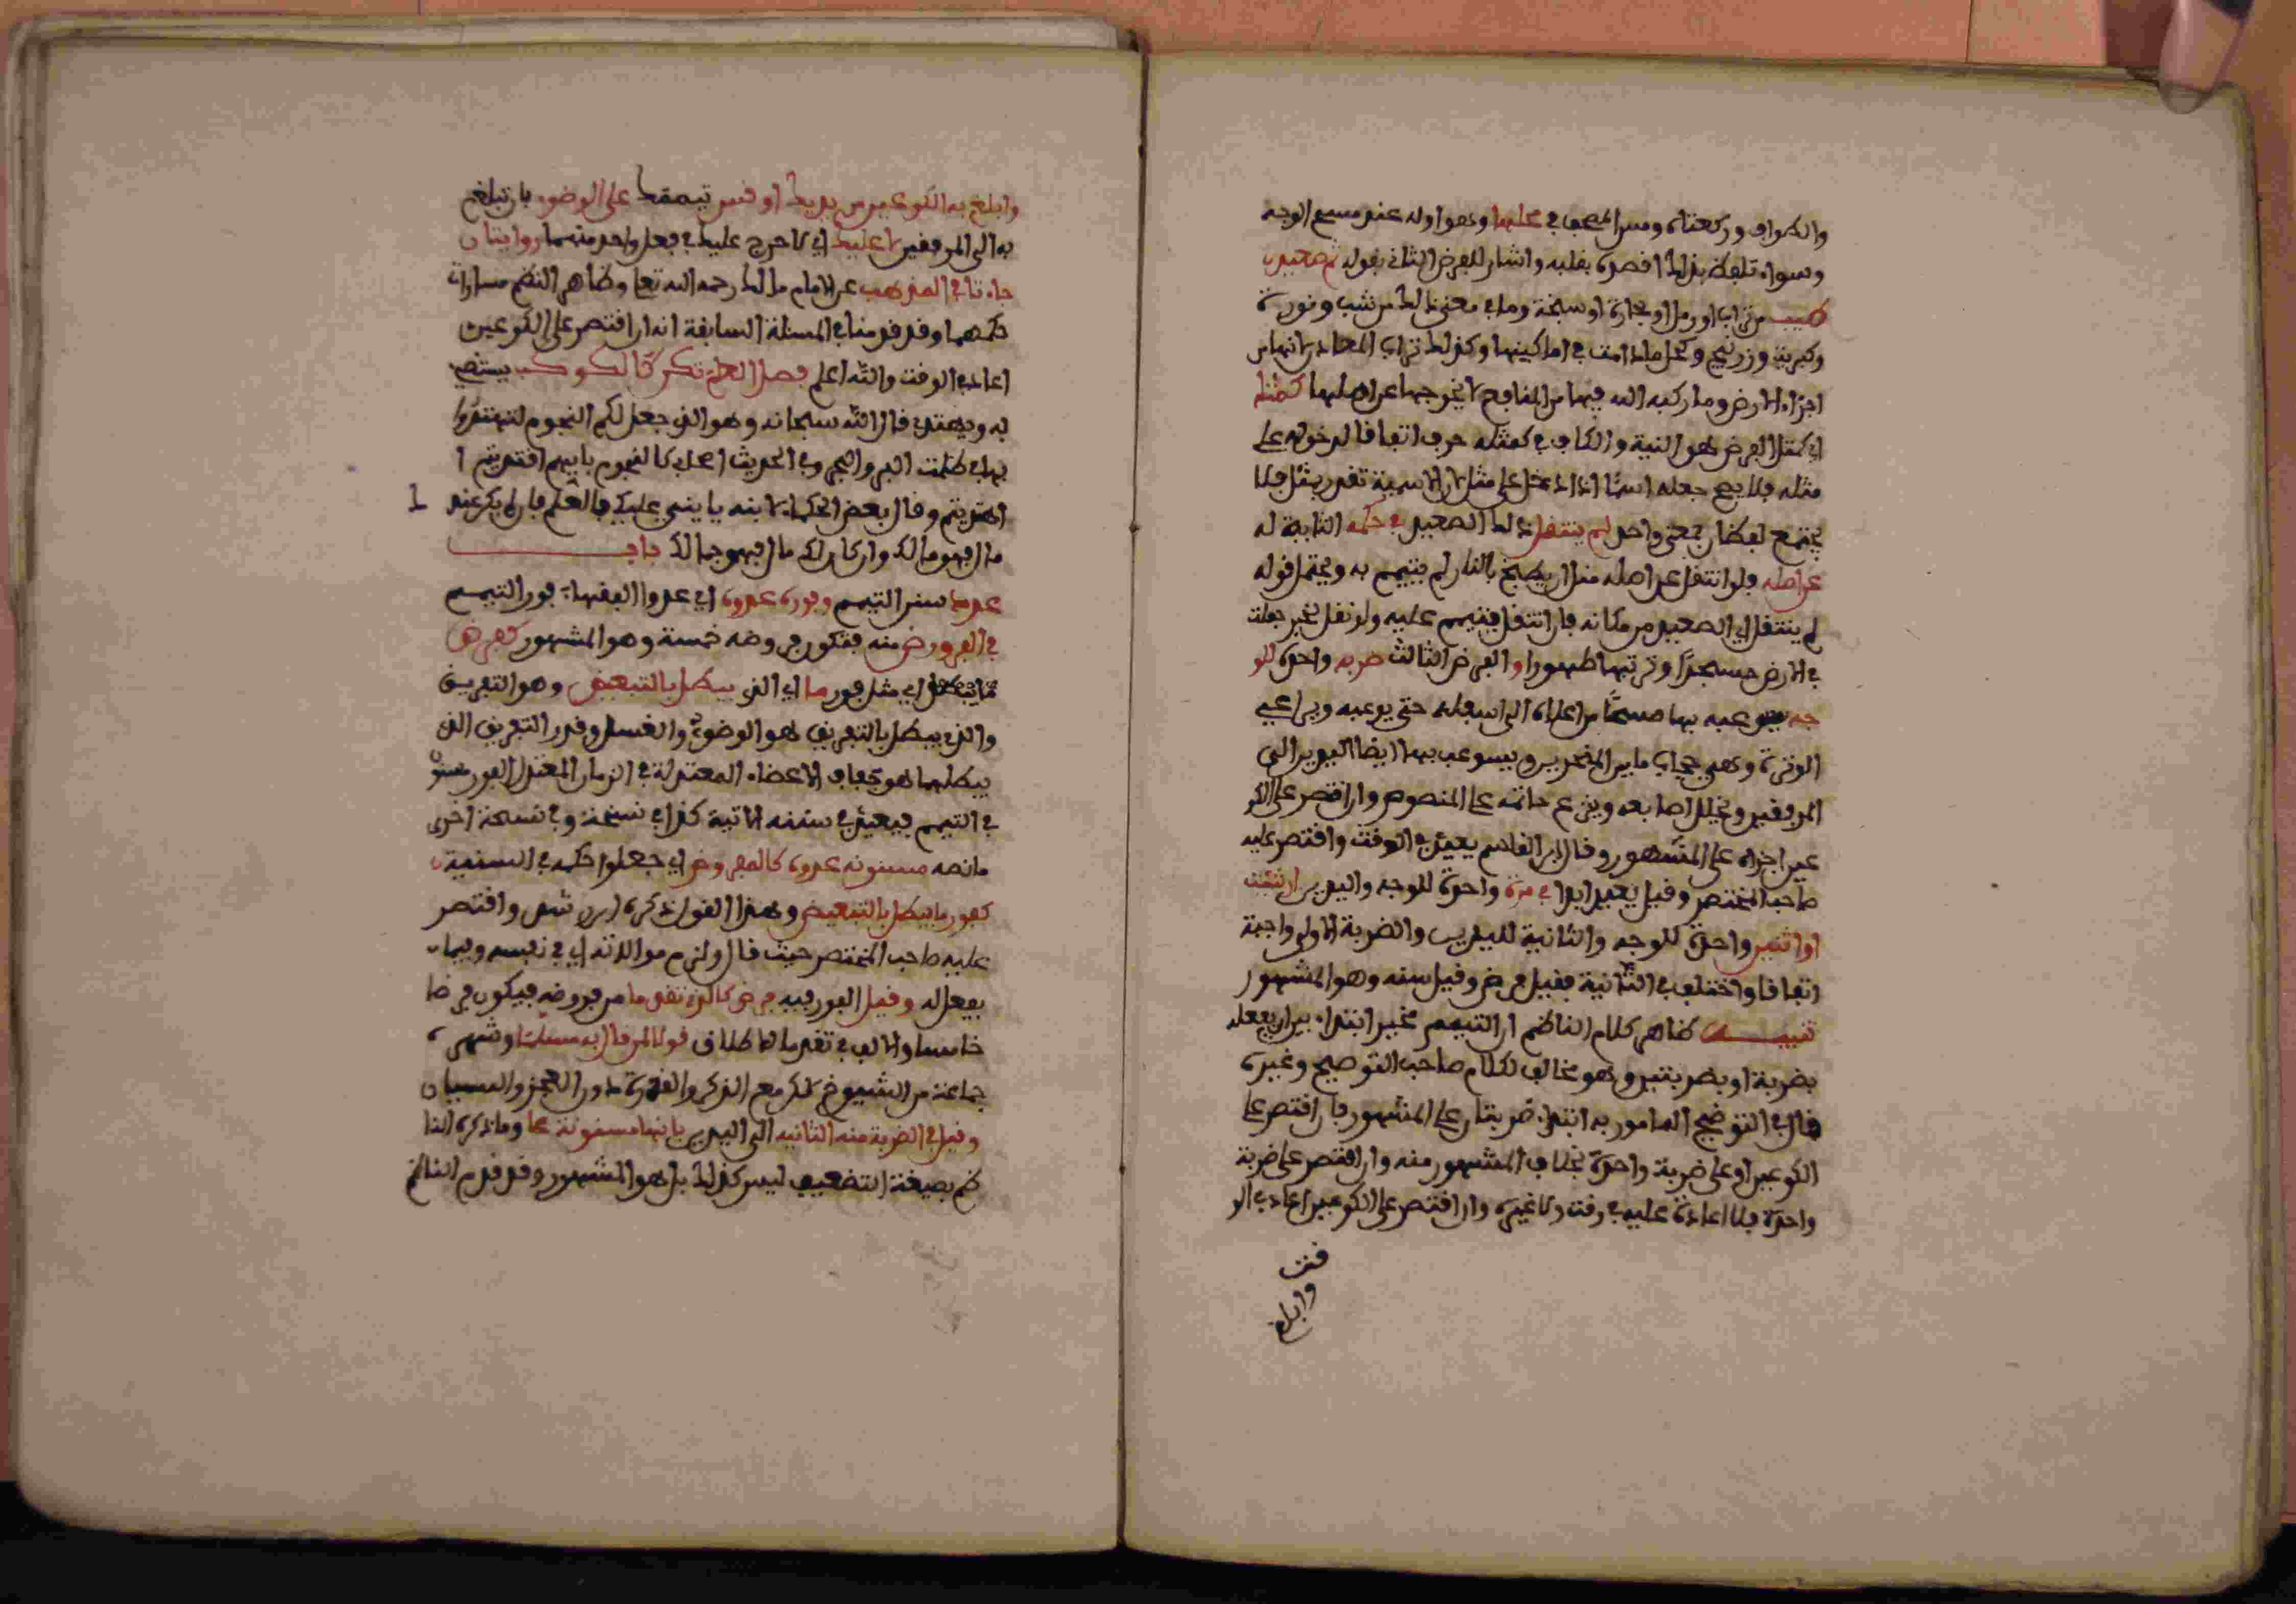 والطواف وركعتاه ومس المصحف في محلها وهو اوله عند مسح الوجه
وسواء تلفظ بذلك اقصده بقلبه واشار للفرض الثاني بقوله ثم صعيد
طيب من تراب او رمل او حجارة او سبخة وما في معنى ذلك من شب ونورة
وكبريت وزرنيخ وكحل ما دامت في اماكينها وكذلك تراب المعادن لانها من
اجزاء الارض وما ركبه الله فيها من المنافع لا يخرجها عن اصلها كمثله
اي كمثل الفرض هو النية والكاف في كمثله حرف اتفاقا لدخوله على
مثله فلا يصح جعله اسما اذا دخل على مثل لان الاسمية تقدر بمثل فلا
يجتمع لفظان بمعنى واحد لم ينتقل ذلك الصعيد في حكمه الثابة له
عن اصله فلو انتقل عن اصله مثل ان يطبخ بالنار لم يتيمم به ويحتمل قوله
لم ينتقل اي الصعيد من مكانه فان انتقل فيتيمم عليه ولو نقل لخبر جعلت
في الارض مسجدًا وتربتها طهورا و الفرض الثالث ضربه واحدة للو
جه يوعبه بها مسحًا من اعلاه الى اسفله حتى يوعبه ويراعي
الوترة وهي حجاب ما بين المنخرين ويسوعب بها ايضا اليدين الى
المرفقين ويخلل اصابعه وينزع خاتمه على المنصوص وان اقتصر على الكو
عين اجزاه على المشهور وقال ابن القاسم يعيد في الوقت واقتصر عليه
صاحب المختصر وقيل يعيد ابدا في مرة واحدة للوجه واليدين ان شئت
او اثنين واحدة للوجه والثانية لليدين والضربة الاولى واجبة
اتفاقا واختلف في الثانية فقيل فرض وقيل سنه وهو المشهور
تنبيه ظاهر كلام الناظم ان التيمم مخير ابتداء بين ان يفعله
بضربة او بضربتين وهو مخالف لكلام صاحب التوضيح وغيره
قال في التوضيح المامور به ابتداء ضربتان على المشهور فان اقتصر على
الكوعين او على ضربة واحدة بخلاف المشهور منه وان اقتصر على ضربة
واحدة فلا اعادة عليه في وقت ولا غيره وان اقتصر على الكوعين اعاد في الو
قت
وابلغ
وابلغ به الكوعين من يديك او قس تيممك على الوضوء بان تبلغ
به الى المرفقين لا عليك اي لا حرج عليك في فعل واحد منهما روايتان
جاءتا في المذهب عن الامام مالك رحمه الله تعلى وظاهر النظم مساوات
حكمهما وقد قدمنا في المسئلة السابقة انه ان اقتصر على الكوعين
اعاد في الوقت والله اعلم فصل العلم تكن كالكوكب يستضء
به ويهتدى قال الله سبحانه وهو الذي جعل لكم النجوم لتهتدوا
بها في ظلمت البر والبحر وفي الحديث اصحابي كالنجوم بايهم اقتديتم ا
اهتديتم وقال بعض الحكماء لابنه يا بني عليك بالعلم فان لم يكن عندك
مال فهو مالك وان كان لك مال فهو جمالك باب
عدد سنن التيمم وفوره عدوه اي عدوا الفقهاء فور التيمم
في الفروض منه فتكون فروضه خمسة وهو المشهور كفرض
ما يبطل اي مثل فور ما اي الذي يبطل بالتبعيض وهو التفريق
والذي يبطل بالتفريق هو الوضوء والغسل وقدر التفريق الذي
يبطلهما هو جفاف الاعضاء المعتدلة في الزمان المعتدل الفور مسنون
في التيمم فيعد في سننه الاتية كذا في نسخة وفي نسخة اخرى
ما نصه مسنونه عدوه كالمفروض اي جعلوا حكمه في السنية
كفور ما يبطل بالتبعيض وهذا القول ذكره ابن رشد واقتصر
عليه صاحب المختصر حيث قال ولزم موالاته اي في نفسه وبيما
يفعل له وقيل الفور فيه فرض كالذي تقدم ما من فروضه فيكون فرضا
خامسا والالف في تقدما للاطلاق قولا لمن قال به مسلتا وشهره
جماعة من الشيوخ لكن مع الذكر والقدرة دون العجز والنسيان
وقيل في الضربة منه الثانيه التي اليدين بانها مسنونة لها وما ذكره النا
ظم بصيغة التضعيف ليس كذلك بل هو المشهور وقد قدم الناظم